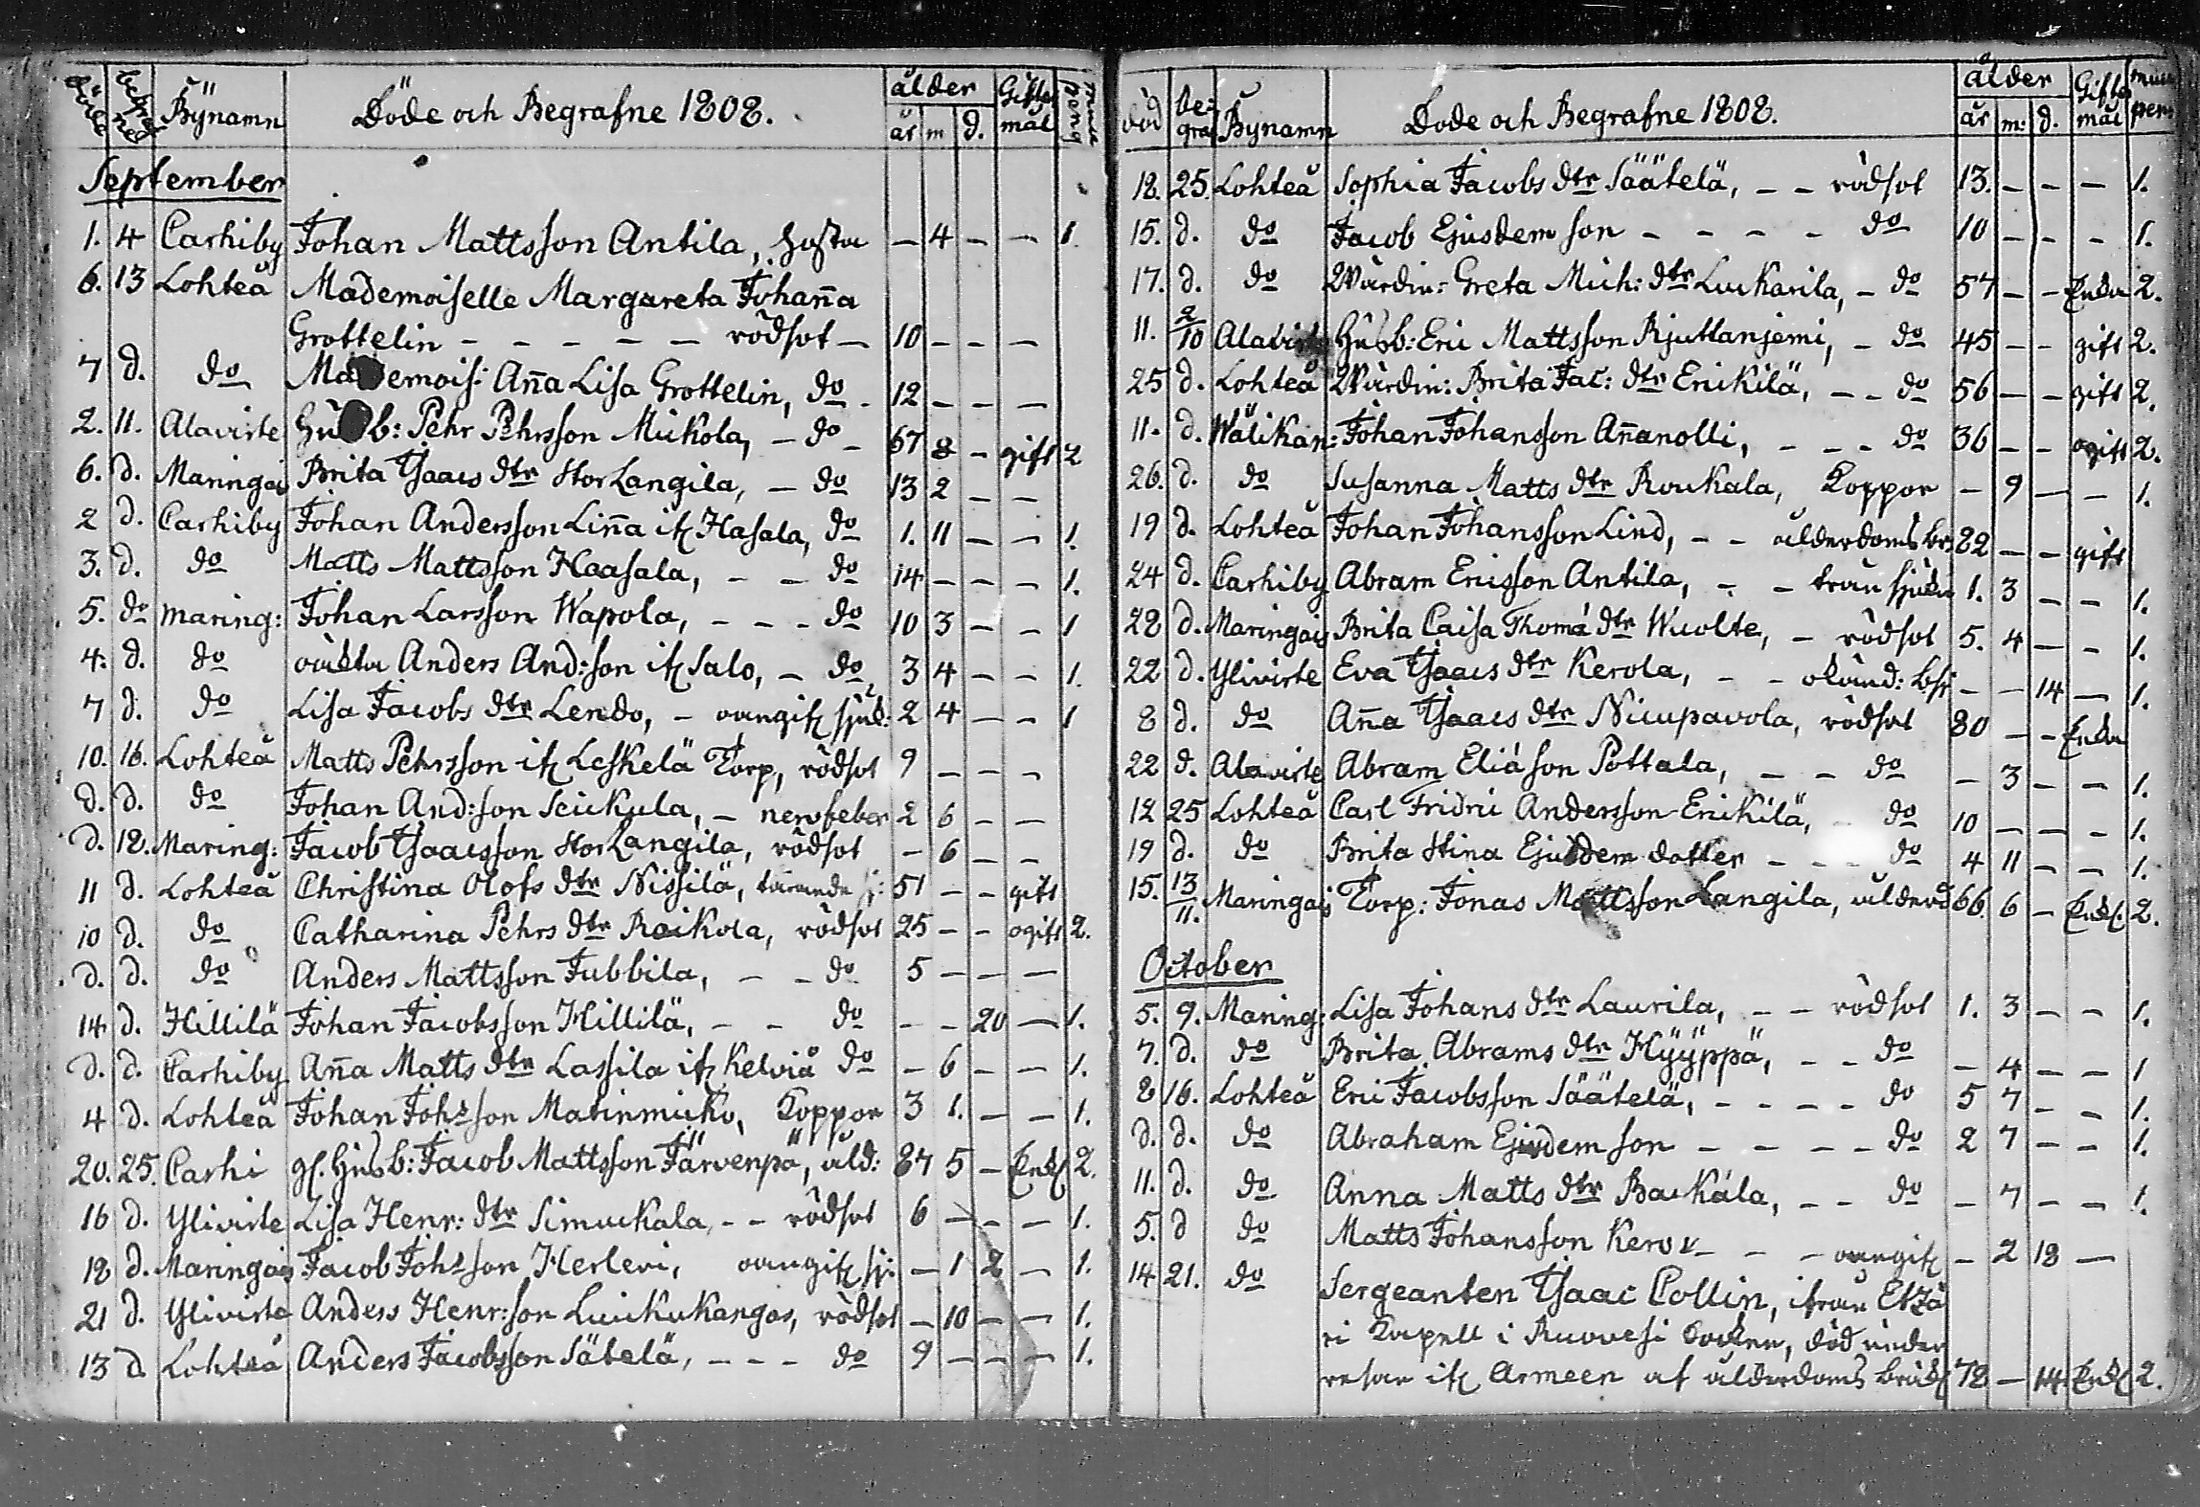 Döde begraf ned Bÿnamn Döde och Begrafne 1808. ålder år m d. Gifter mål
September
1. 4 Carhiby Johan Mattsson Antila, hosta — 4 — — 1
6. 13 Lohteå Mademoiselle Margareta Johaña
Grottelin — — — — — rödsot — 10 — — —
7 d. do Mademois: Aña Lisa Grottelin, do 12 — — —
2. 11. Alaviste Husb: Pehr Pehrsson Mickola, — do — 67 8 — gift 2
6. d. Maringais Brita Isaacs dtr StorLangila, — do 13 2 — —
2 d. Carhiby Johan Andersson Liña Hasala, do 1. 11 — — 1.
3. d. do Matts Mattsson Haasala, — — do 14 — — — 1.
5. do Maring: Johan Larsson Wapola, — — — do 10 3 — — 1
4. d. do Anders And:son Salo, — do 3 4 — — 1.
7 d. do Lisa Jacobs dtr Lendo, — sjuk: 2 4 — — 1
10. 16. Lohteå Matts Pehrsson Leskelä Torp, rödsot 9 — — —
d. d. do Johan And:son Seikula, — nervfeber 2 6 — —
d. 18. Maring: Jacob Isaacsson StorLangila, rödsot — 6 — —
11 d. Lohteå Christina Olofs dtr Nissilä, tärande sj: 51 — — gift
10 d. do Catharina Pehrs dtr Raikola, rödsot 25 — — ogift 2.
d. d. do Anders Mattsson Jubbila, — — do 5 — — —
14 d. Hillilä Johan Jacobsson Hillilä, — — do — — 20 — 1.
d. d. Carhiby Aña Matts dtr Lassila Kelviå do — 6 — — 1.
4 d. Lohteå Johan Johsson Matinmicko, Koppor 3 1. — — 1.
20. 25. Carhi gl. Husb: Jacob Mattsson Järvenpä, åld: 87 5 — Enkl 2.
16 d. Yliviste Lisa Henr: dtr Simuckala, — — rödsot 6 — — — 1.
18 d. Maringais Jacob Johsson Herlevi, sj: — 1 2 — 1.
21 d. Yliviste Anders Henr:son Luickukangas, rödsot — 10 — — 1.
13 d Lohteå Anders Jacobsson Sätelä, — — — do 9 — — — 1.
död be: graf Bÿnamn Döde och Begrafne 1808. ålder år m: d. Gifte mål
18. 25. Lohteå Sophia Jacobs dtr Säätelä, — — rödsot 13. — — — 1.
15. d. do Jacob Ejusdem son — — — — do 10 — — — 1.
17. d. do Wärdin: Greta Mich: dtr Luckarila, — do 57 — — Enka 2.
11. 2/10 Alaviste Husb: Eric Mattsson Rjuttanjemi, — do 45 — — gift 2.
25 d. Lohteå Wärdin: Brita Jac: dtr Erickilä, — — do 56 — — gift 2.
11. d. Wälikan: Johan Johansson Añanolli, — — — do 36 — — ogift 2.
26. d. do Susanna Matts dtr Roukala, Koppor — 9 — — 1.
19 d. Lohteå Johan Johansson Lind, — — ålderdoms br: 82 — — gift
24 d. Carhiby Abram Ericsson Antila, — — 1. 3 — — 1.
28 d. Maringais Brita Caisa Thomæ dtr Wuolte, — rödsot 5. 4 — — 1.
22 d. Yliviste Eva Isaacs dtr Kerola, — — okänd: — — 14 — 1.
8 d. do Aña Isaacs dtr Nicupavola, rödsot 80 — — Enka
22 d. Alaviste Abram Eliæson Pottala, — — do — 3 — — 1.
18 25 Lohteå Carl Fridric Andersson Erickilä, — do 10 — — — 1.
19 d. do Brita Stina Ejusdem dotter — — — do 4 11 — — 1.
15. 13/11. Maringais Torp: Jonas Mattsson Langila, ålderd 66 6 — Enkl. 2.
October
5. 9. Maring: Lisa Johans dtr Laurila, — — rödsot 1. 3 — — 1.
7. d. do Brita Abrams dtr Hÿÿppä, — — do — 4 — — 1
8 16. Lohteå Eric Jacobsson Säätelä, — — — — do 5 7 — — 1.
d. d. do Abraham Ejusdem son — — — — do 2 7 — — 1.
11. d. do Anna Matts dtr Backala, — — do — 7 — — 1.
5. d do Matts Johansson — — — 2 18 —
14 21. do Sergeanten Isaac Collin, ifrån Etzä
ri Kapell i Ruovesi Socken, död under
resan Armeen af ålderdoms bräckl 78 — 14. Enkl 2.